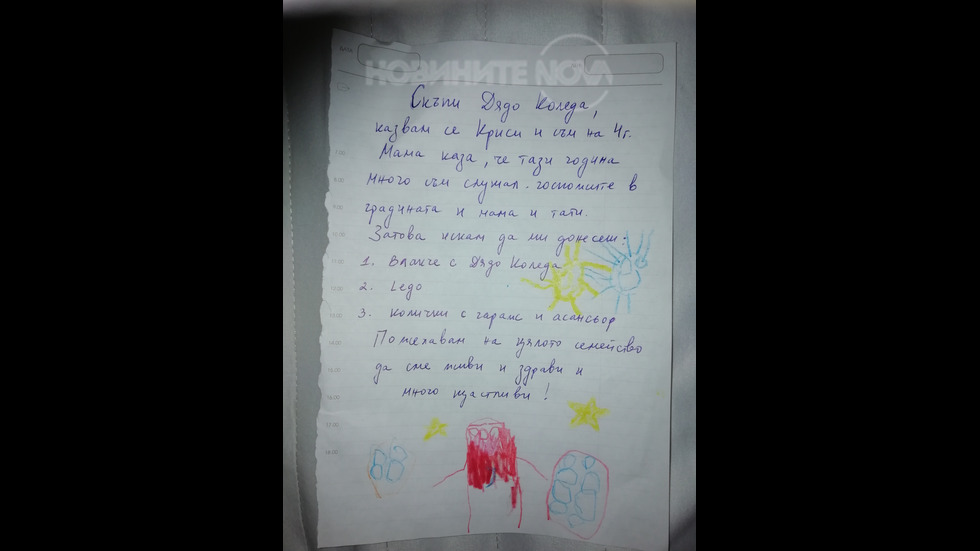 НОВИНИТЕ NOVA
Скъпи Дядо Коледа,
казвам се Криси и съм на 4г.
Мама каза, че тази година
много съм слушал госпожите в
градината и мама и тати.
Затова искам да ми донесеш:
1. Влакче с Дядо Коледа
2. Lego
3. колички с гараж и асансьор
Пожелавам на цялото семейство
да сме живи и здрави и
много щастливи!
7.00
8.00
9.00
10.00
13.00
14.00
15.00
16.00
17.00
18.00